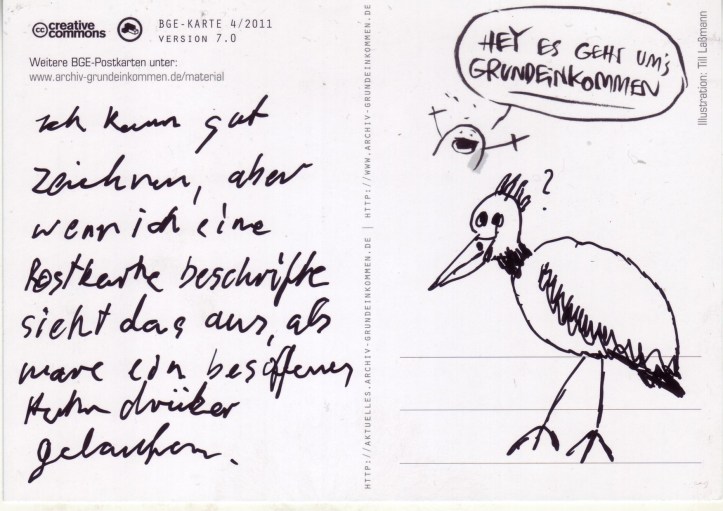 creative commons
BGE-KARTE 4/2011
VERSION 7.0
Weitere BGE-Postkarten unter:
www.archiv-grundeinkommen.de/material
Ich kann gut
zeichnen, aber
wenn ich eine
Postkarte beschrifte
sieht das aus, als
wäre ein besoffenes
Huhn drüber
gelaufen.
HTTP://AKTUELLES.ARCHIV-GRUNDEINKOMMEN.DE | HTTP://WWW.ARCHIV-GRUNDEINKOMMEN.DE
HEY ES GEHT UM'S
GRUNDEINKOMMEN
?
Illustration: Till Laßmann